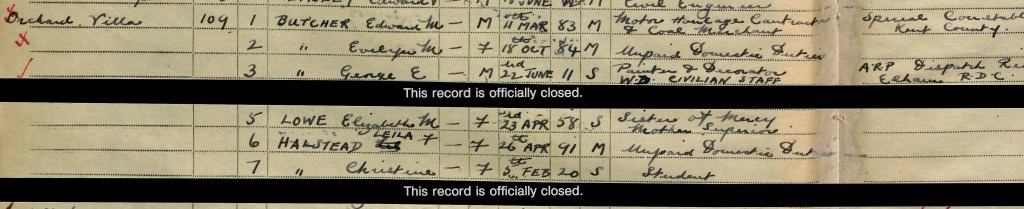 Civil Engineer
Orchard Villa 109 1 BUTCHER Edward M — M 11th MAR 83 M Motor Haulage Contractor & Coal Merchant Special Constable Kent County
2 " Evelyn M — F 18th OCT 84 M Unpaid Domestic Duties
3 " George E — M 22nd JUNE 11 S Painter & Decorator W.D. CIVILIAN STAFF ARP Dispatch Elham R.D.C.
This record is officially closed.
5 LOWE Elizabeth M — F 23rd APR 58 S Sister of Mercy Mother Superior
6 HALSTEAD LEILA F — F 26th APR 91 M Unpaid Domestic Duties
7 " Christine — F 5th FEB 20 S Student
This record is officially closed.